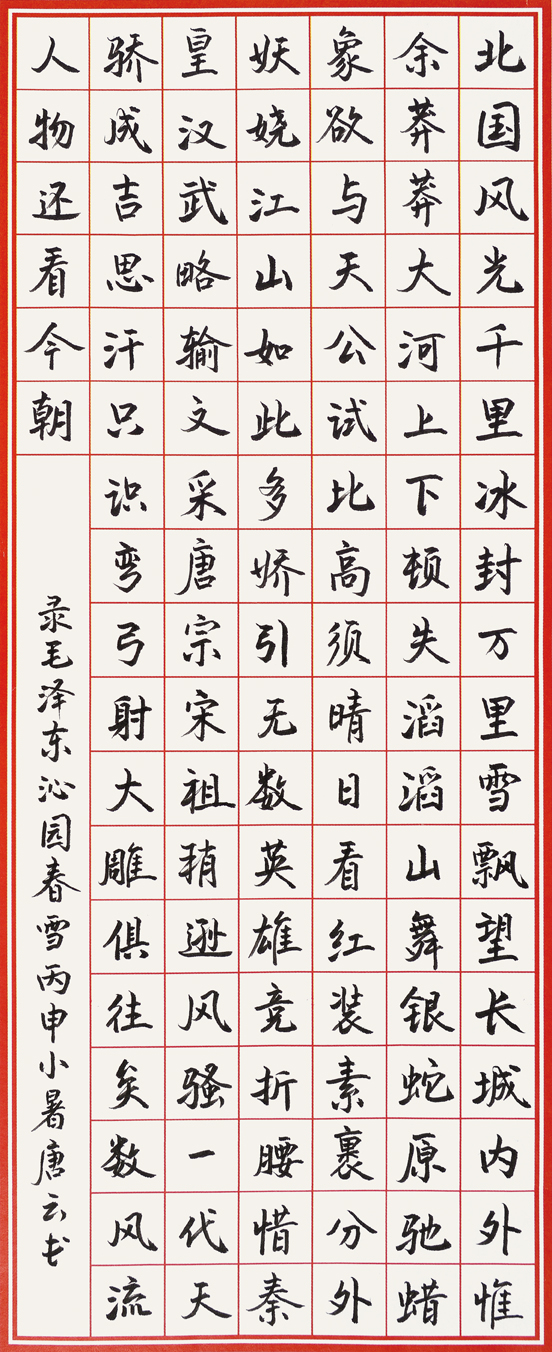 北国风光千里冰封万里雪飘望长城内外惟
余莽莽大河上下顿失滔滔山舞银蛇原驰蜡
象欲与天公试比高须晴日看红装素裹分外
妖娆江山如此多娇引无数英雄竞折腰惜秦
皇汉武略输文采唐宗宋祖稍逊风骚一代天
骄成吉思汗只识弯弓射大雕俱往矣数风流
人物还看今朝
录毛泽东沁园春雪丙申小暑唐云书